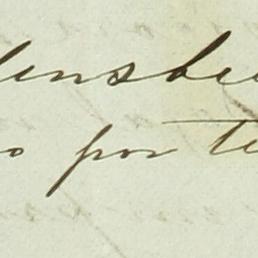 lensbu
o por te